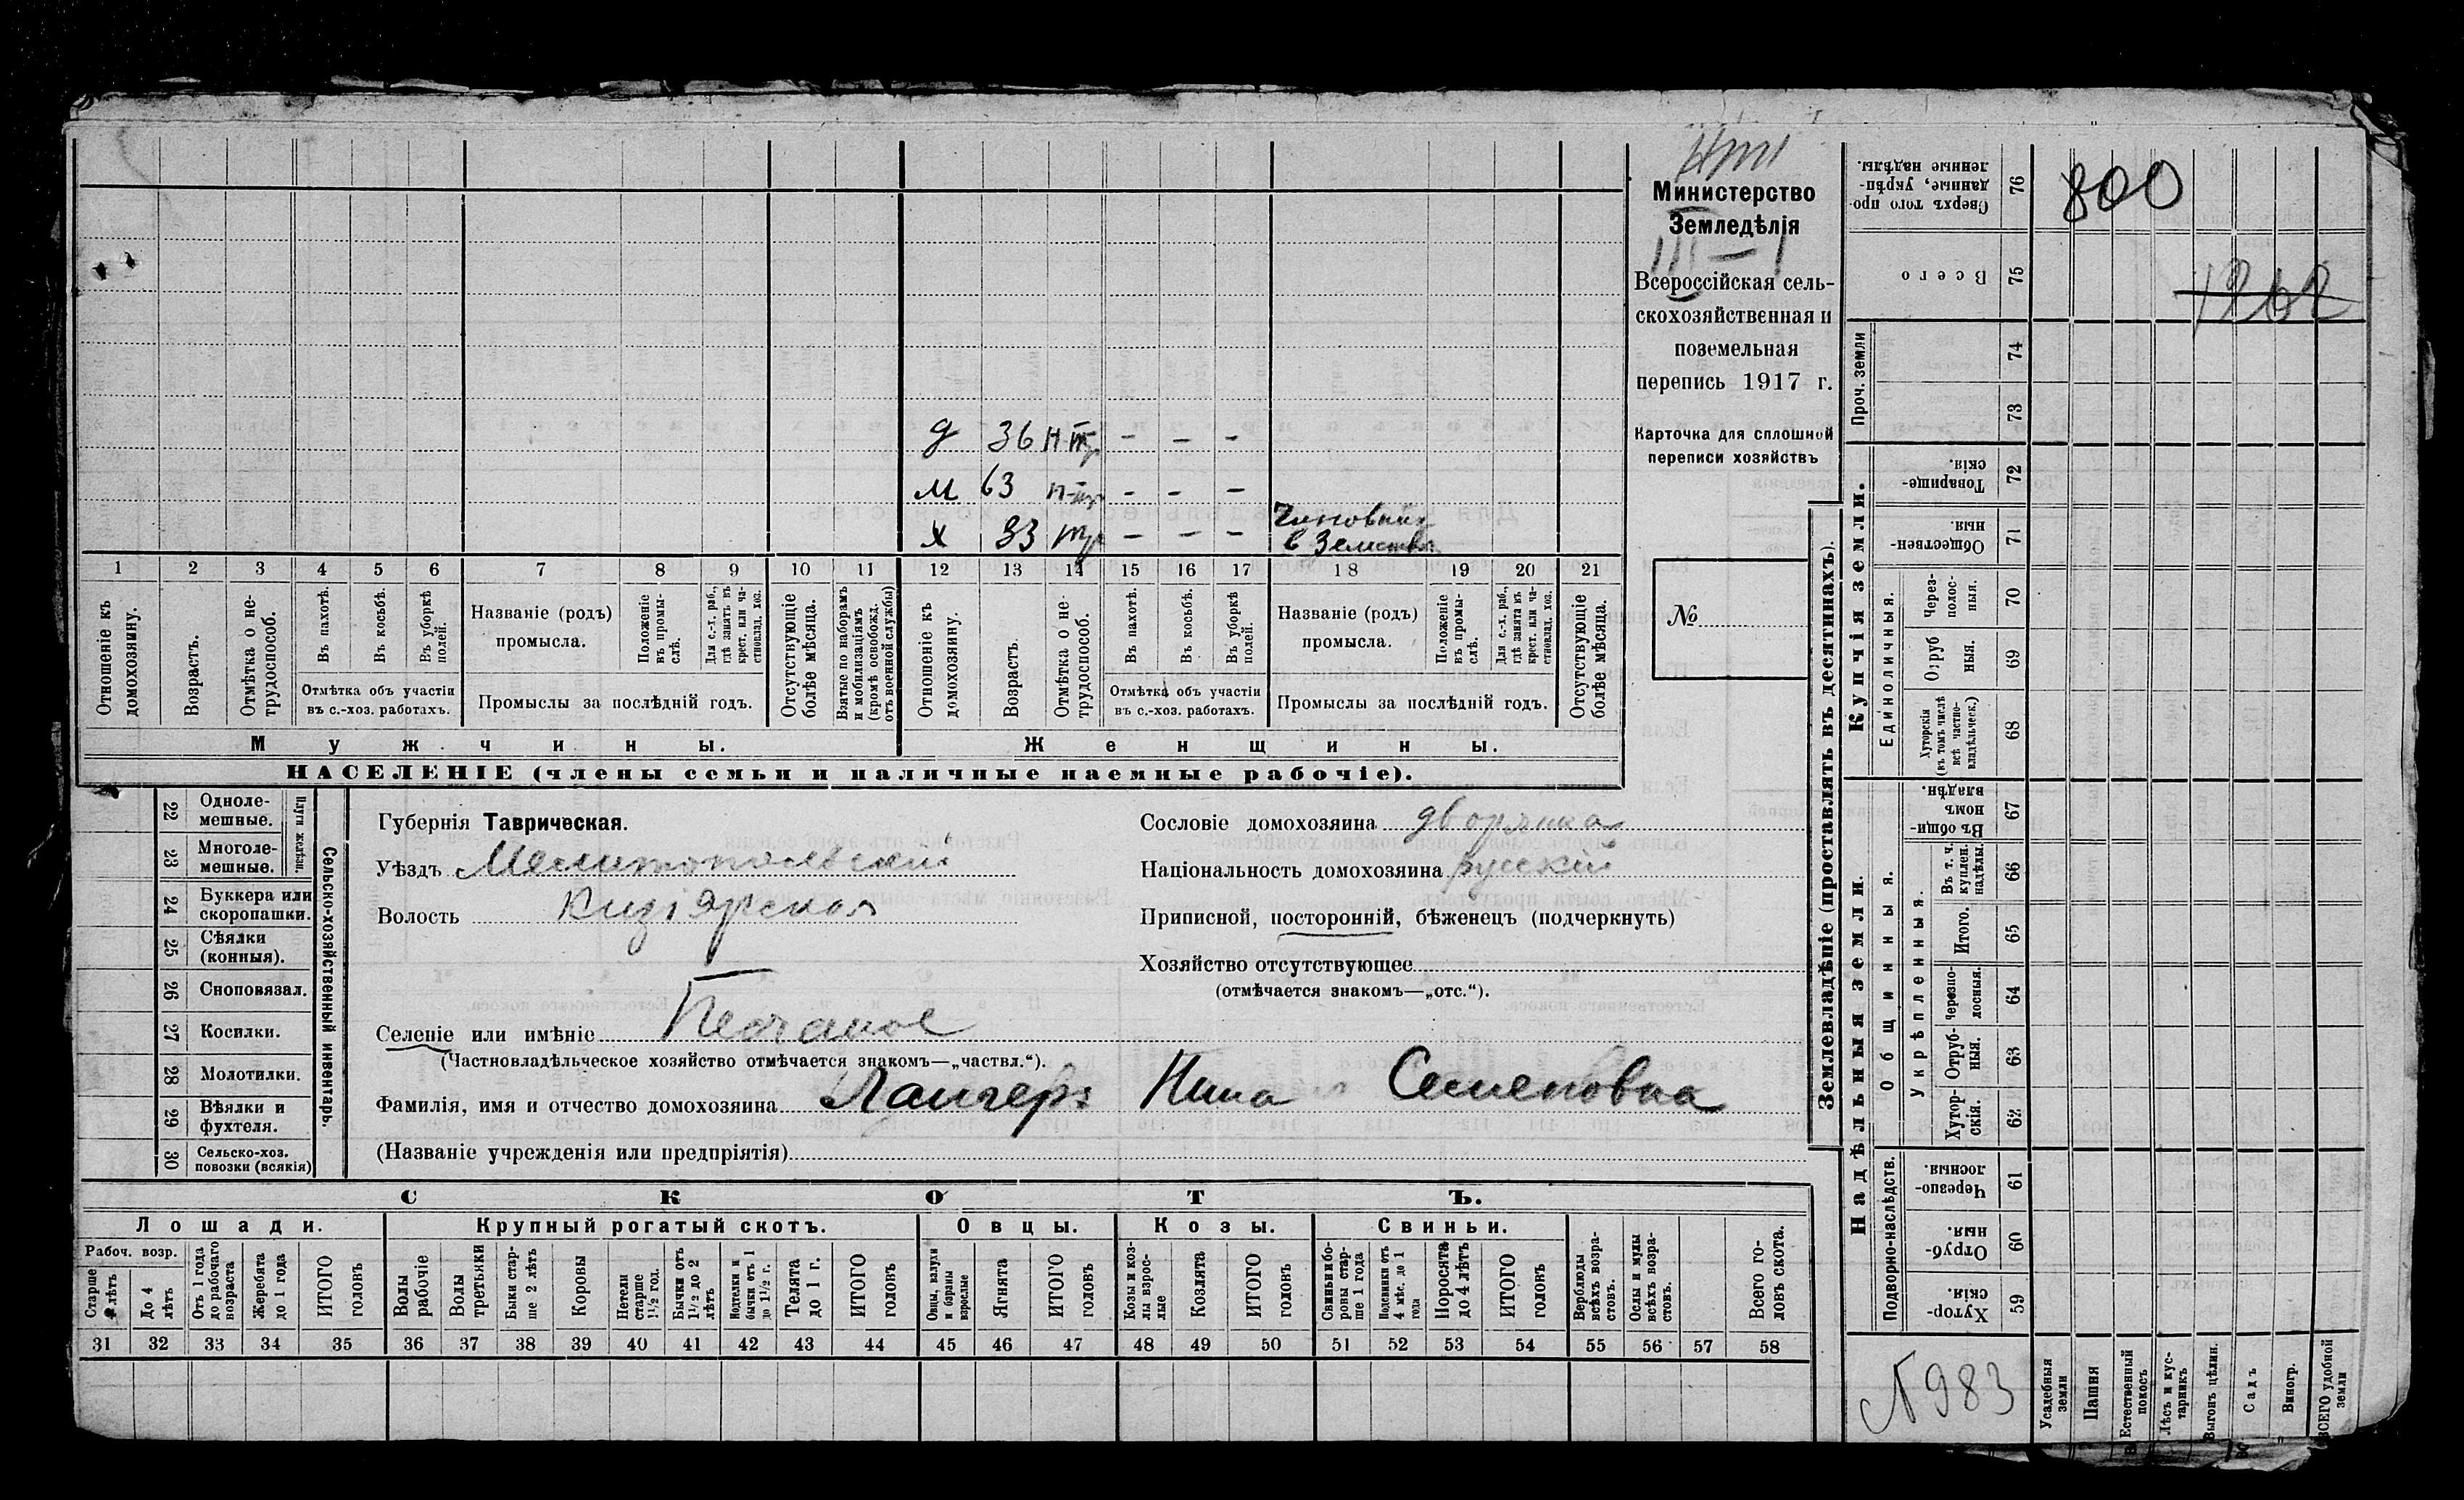 Министерство
Земледѣлія
III — I
Всероссійская сель-
скохозяйственная и
поземельная
перепись 1917 г.
Карточка для сплошной
переписи хозяйствъ
№
д 36 н-тр – – –
м 63 н-тр – – –
х 33 тр – – –
в Земствѣ
1 2 3 4 5 6 7 8 9 10 11 12 13 14 15 16 17 18 19 20 21
Отношеніе къ домохозяину.
Возрастъ.
Отмѣтка о не-трудоспособ.
Въ пахотѣ.
Въ косьбѣ.
Въ уборкѣ полей.
Отмѣтка объ участіи
въ с.-хоз. работахъ.
Названіе (родъ)
промысла.
Положеніе въ промы-слѣ.
Для с.-х. раб., гдѣ занятъ въ крест. или ча-стновлад. хоз.
Промыслы за послѣдній годъ.
Отсутствующіе болѣе мѣсяца.
Взятые по наборамъ и мобилизаціямъ (кромѣ освобожд. отъ военной службы)
Отношеніе къ домохозяину.
Возрастъ.
Отмѣтка о не-трудоспособ.
Въ пахотѣ.
Въ косьбѣ.
Въ уборкѣ полей.
Отмѣтка объ участіи
въ с.-хоз. работахъ.
Названіе (родъ)
промысла.
Положеніе въ промы-слѣ.
Для с.-х. раб., гдѣ занята въ крест. или ча-стновлад. хоз.
Промыслы за послѣдній годъ.
Отсутствующіе болѣе мѣсяца.
Мужчины.
Женщины.
НАСЕЛЕНІЕ (члены семьи и наличные наемные рабочіе).
Сельско-хозяйственный инвентарь.
Плуги желѣзн.
22 Одноле-мешные.
23 Многоле-мешные.
24 Буккера или скоропашки.
25 Сѣялки (конныя).
26 Сноповязал.
27 Косилки.
28 Молотилки.
29 Вѣялки и фухтеля.
30 Сельско-хоз. повозки (всякія)
Губернія Таврическая.
Уѣздъ Мелитопольскій
Волость Кизіярская
Селеніе или имѣніе Песчаное
(Частновладѣльческое хозяйство отмѣчается знакомъ—„частвл.“).
Фамилія, имя и отчество домохозяина Лангеръ Нина Семеновна
(Названіе учрежденія или предпріятія)
Сословіе домохозяина дворянка
Національность домохозяина русскій
Приписной, посторонній, бѣженецъ (подчеркнуть)
Хозяйство отсутствующее
(отмѣчается знакомъ—„отс.“).
СКОТЪ.
Лошади.
Рабоч. возр.
До 4 лѣтъ
Отъ 1 года до рабочаго возраста
Жеребята до 1 года
ИТОГО головъ
Крупный рогатый скотъ.
Волы рабочіе
Волы третьяки
Быки стар-ше 2 лѣтъ
Коровы
Нетели старше 1½ год.
Бычки отъ 1½ до 2 лѣтъ
Подтелки и бычки отъ 1 до 1½ г.
Телята до 1 г.
ИТОГО головъ
Овцы.
Овцы, валухи и бараны взрослые
Ягнята
ИТОГО головъ
Козы.
Козы и коз-лы взрос-лые
Козлята
ИТОГО головъ
Свиньи.
Свиньи и бо-ровы стар-ше 1 года
Подсвинки отъ 4 мѣс. до 1 года
Поросята до 4 лѣтъ
ИТОГО головъ
Верблюды всѣхъ возра-стовъ.
Ослы и мулы всѣхъ возра-стовъ.
Всего го-ловъ скота.
31 32 33 34 35 36 37 38 39 40 41 42 43 44 45 46 47 48 49 50 51 52 53 54 55 56 57 58
Землевладѣніе (проставлять въ десятинахъ).
Купчія земли.
Надѣльныя земли.
Сверхъ того про-данные, укрѣп-ленные надѣлы. 76
800
Всего 75
1262
Проч. земли
74
73
Товарище-скія. 72
Обществен-ныя. 71
Единоличныя.
Через-полос-ныя. 70
Отруб-ныя. 69
Хуторскія (въ томъ числѣ всѣ частно-владѣльческ.) 68
Общинныя.
Въ общин-номъ владѣн. 67
Укрѣпленныя.
Въ т. ч. куплен. надѣлы. 66
Итого. 65
Черезпо-лосныя. 64
Отруб-ныя. 63
Хутор-скія. 62
Подворно-наслѣдств.
Черезпо-лосныя. 61
Отруб-ныя. 60
Хутор-скія. 59
№ 983
Усадебныя земли
Пашня
Естественный покосъ
Лѣсъ и кус-тарникъ
Выгонъ цѣлин.
Садъ
Виногр.
ВСЕГО удобной земли